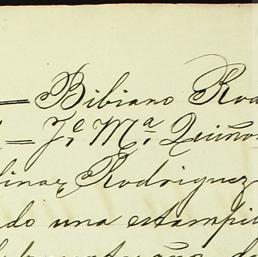 — Bibiano Rod
— J.e M.a Quiño
linar, Rodriguez
do una estampi